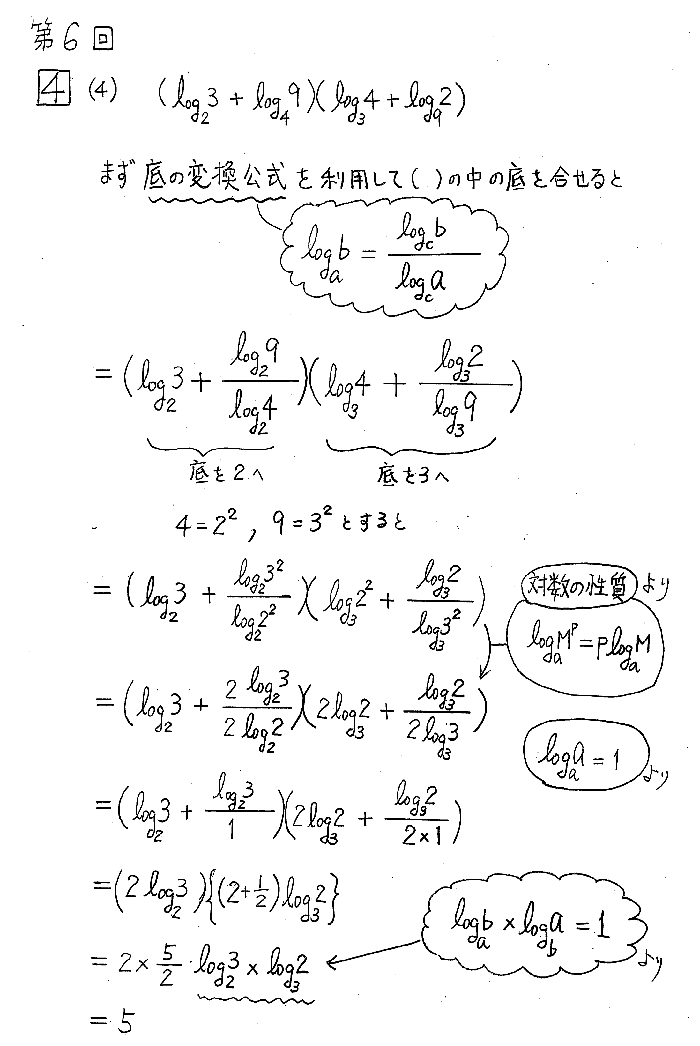 第6回
4 (4) (log₂3 + log₄9)(log₃4 + log₉2)
まず底の変換公式を利用して( )の中の底を合せると
logₐb = log_c b / log_c a
= (log₂3 + log₂9 / log₂4)(log₃4 + log₃2 / log₃9)
底を2へ 底を3へ
4=2², 9=3²とすると
= (log₂3 + log₂3² / log₂2²)(log₃2² + log₃2 / log₃3²)
対数の性質より
logₐMᵖ = p logₐM
= (log₂3 + 2log₂3 / 2log₂2)(2log₃2 + log₃2 / 2log₃3)
logₐa = 1 より
= (log₂3 + log₂3 / 1)(2log₃2 + log₃2 / 2×1)
= (2log₂3){(2+1/2)log₃2}
logₐb × log_b a = 1 より
= 2 × 5/2 · log₂3 × log₃2
= 5